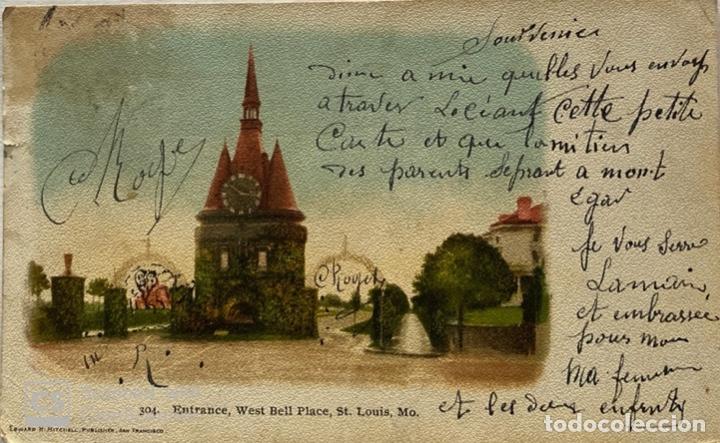 Souvenier
dun a mie quelles vous envoys
a traver Loceant Cette petite
Carte et que Lamitier
des parents seprant a mont
Egar
Je vous Serre
Lamain,
et embrassee
pous mon
Ma femme
et les deux enfents
304. Entrance, West Bell Place, St. Louis, Mo.
EDWARD H. MITCHELL, PUBLISHER, SAN FRANCISCO.
todocoleccion.net